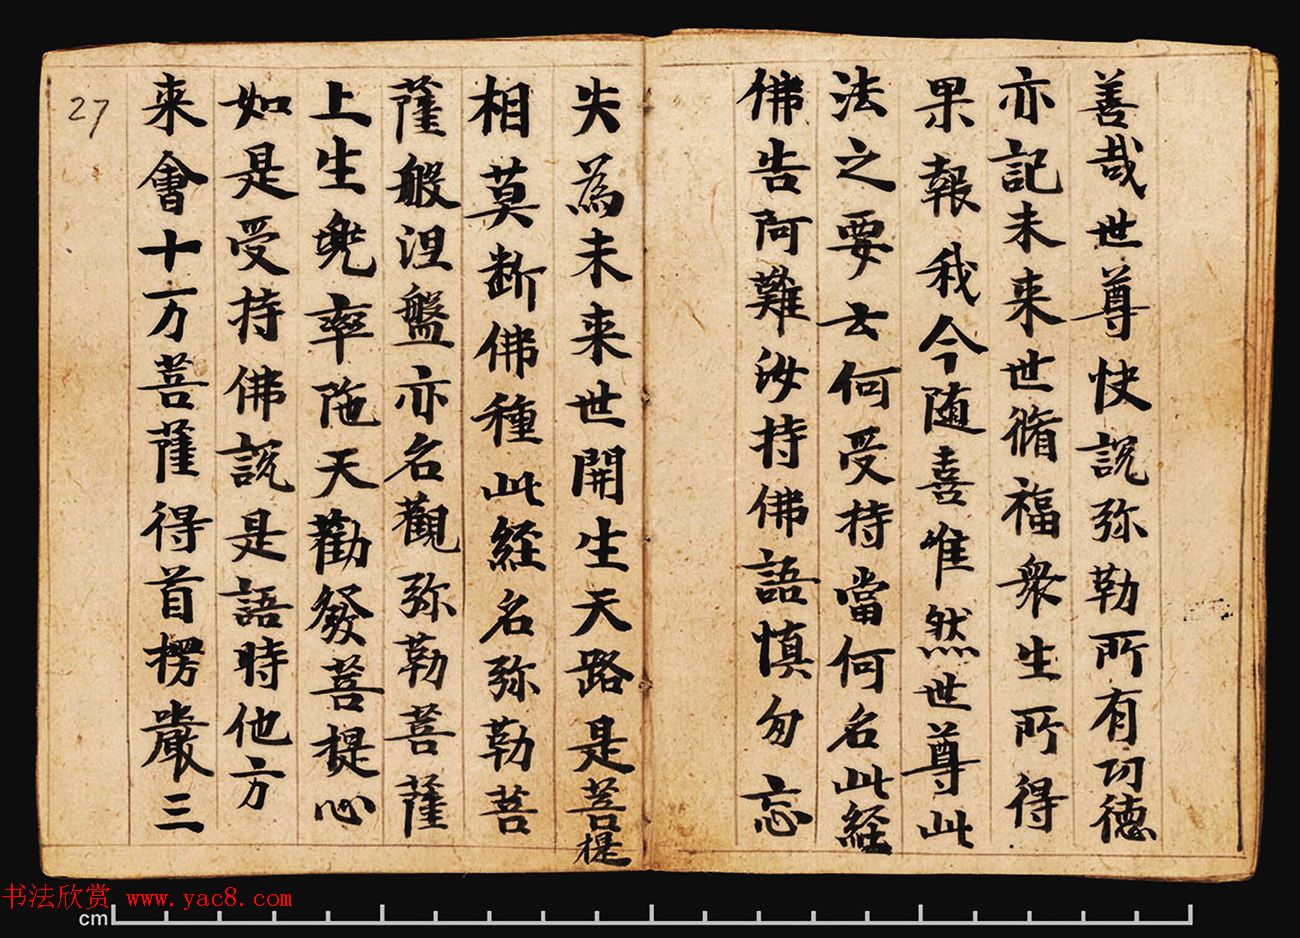 善哉世尊快說弥勒所有功德
亦記未来世脩福衆生所得
果報我今随喜唯然世尊此
法之要云何受持當何名此経
佛告阿難汝持佛語慎勿忘
失為未来世開生天路是菩提
相莫断佛種此経名弥勒菩
薩般涅盤亦名觀弥勒菩薩
上生兜率陁天勸發菩提心
如是受持佛說是語時他方
来會十万菩薩得首楞嚴三
27
书法欣赏 www.yac8.com
cm